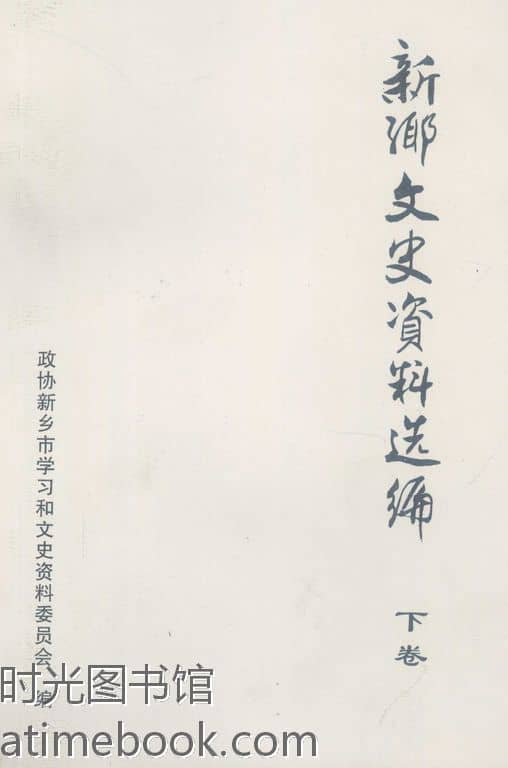 新鄉文史資料选编
下卷
政协新乡市学习和文史资料委员会 编
时光图书馆
atimebook.com